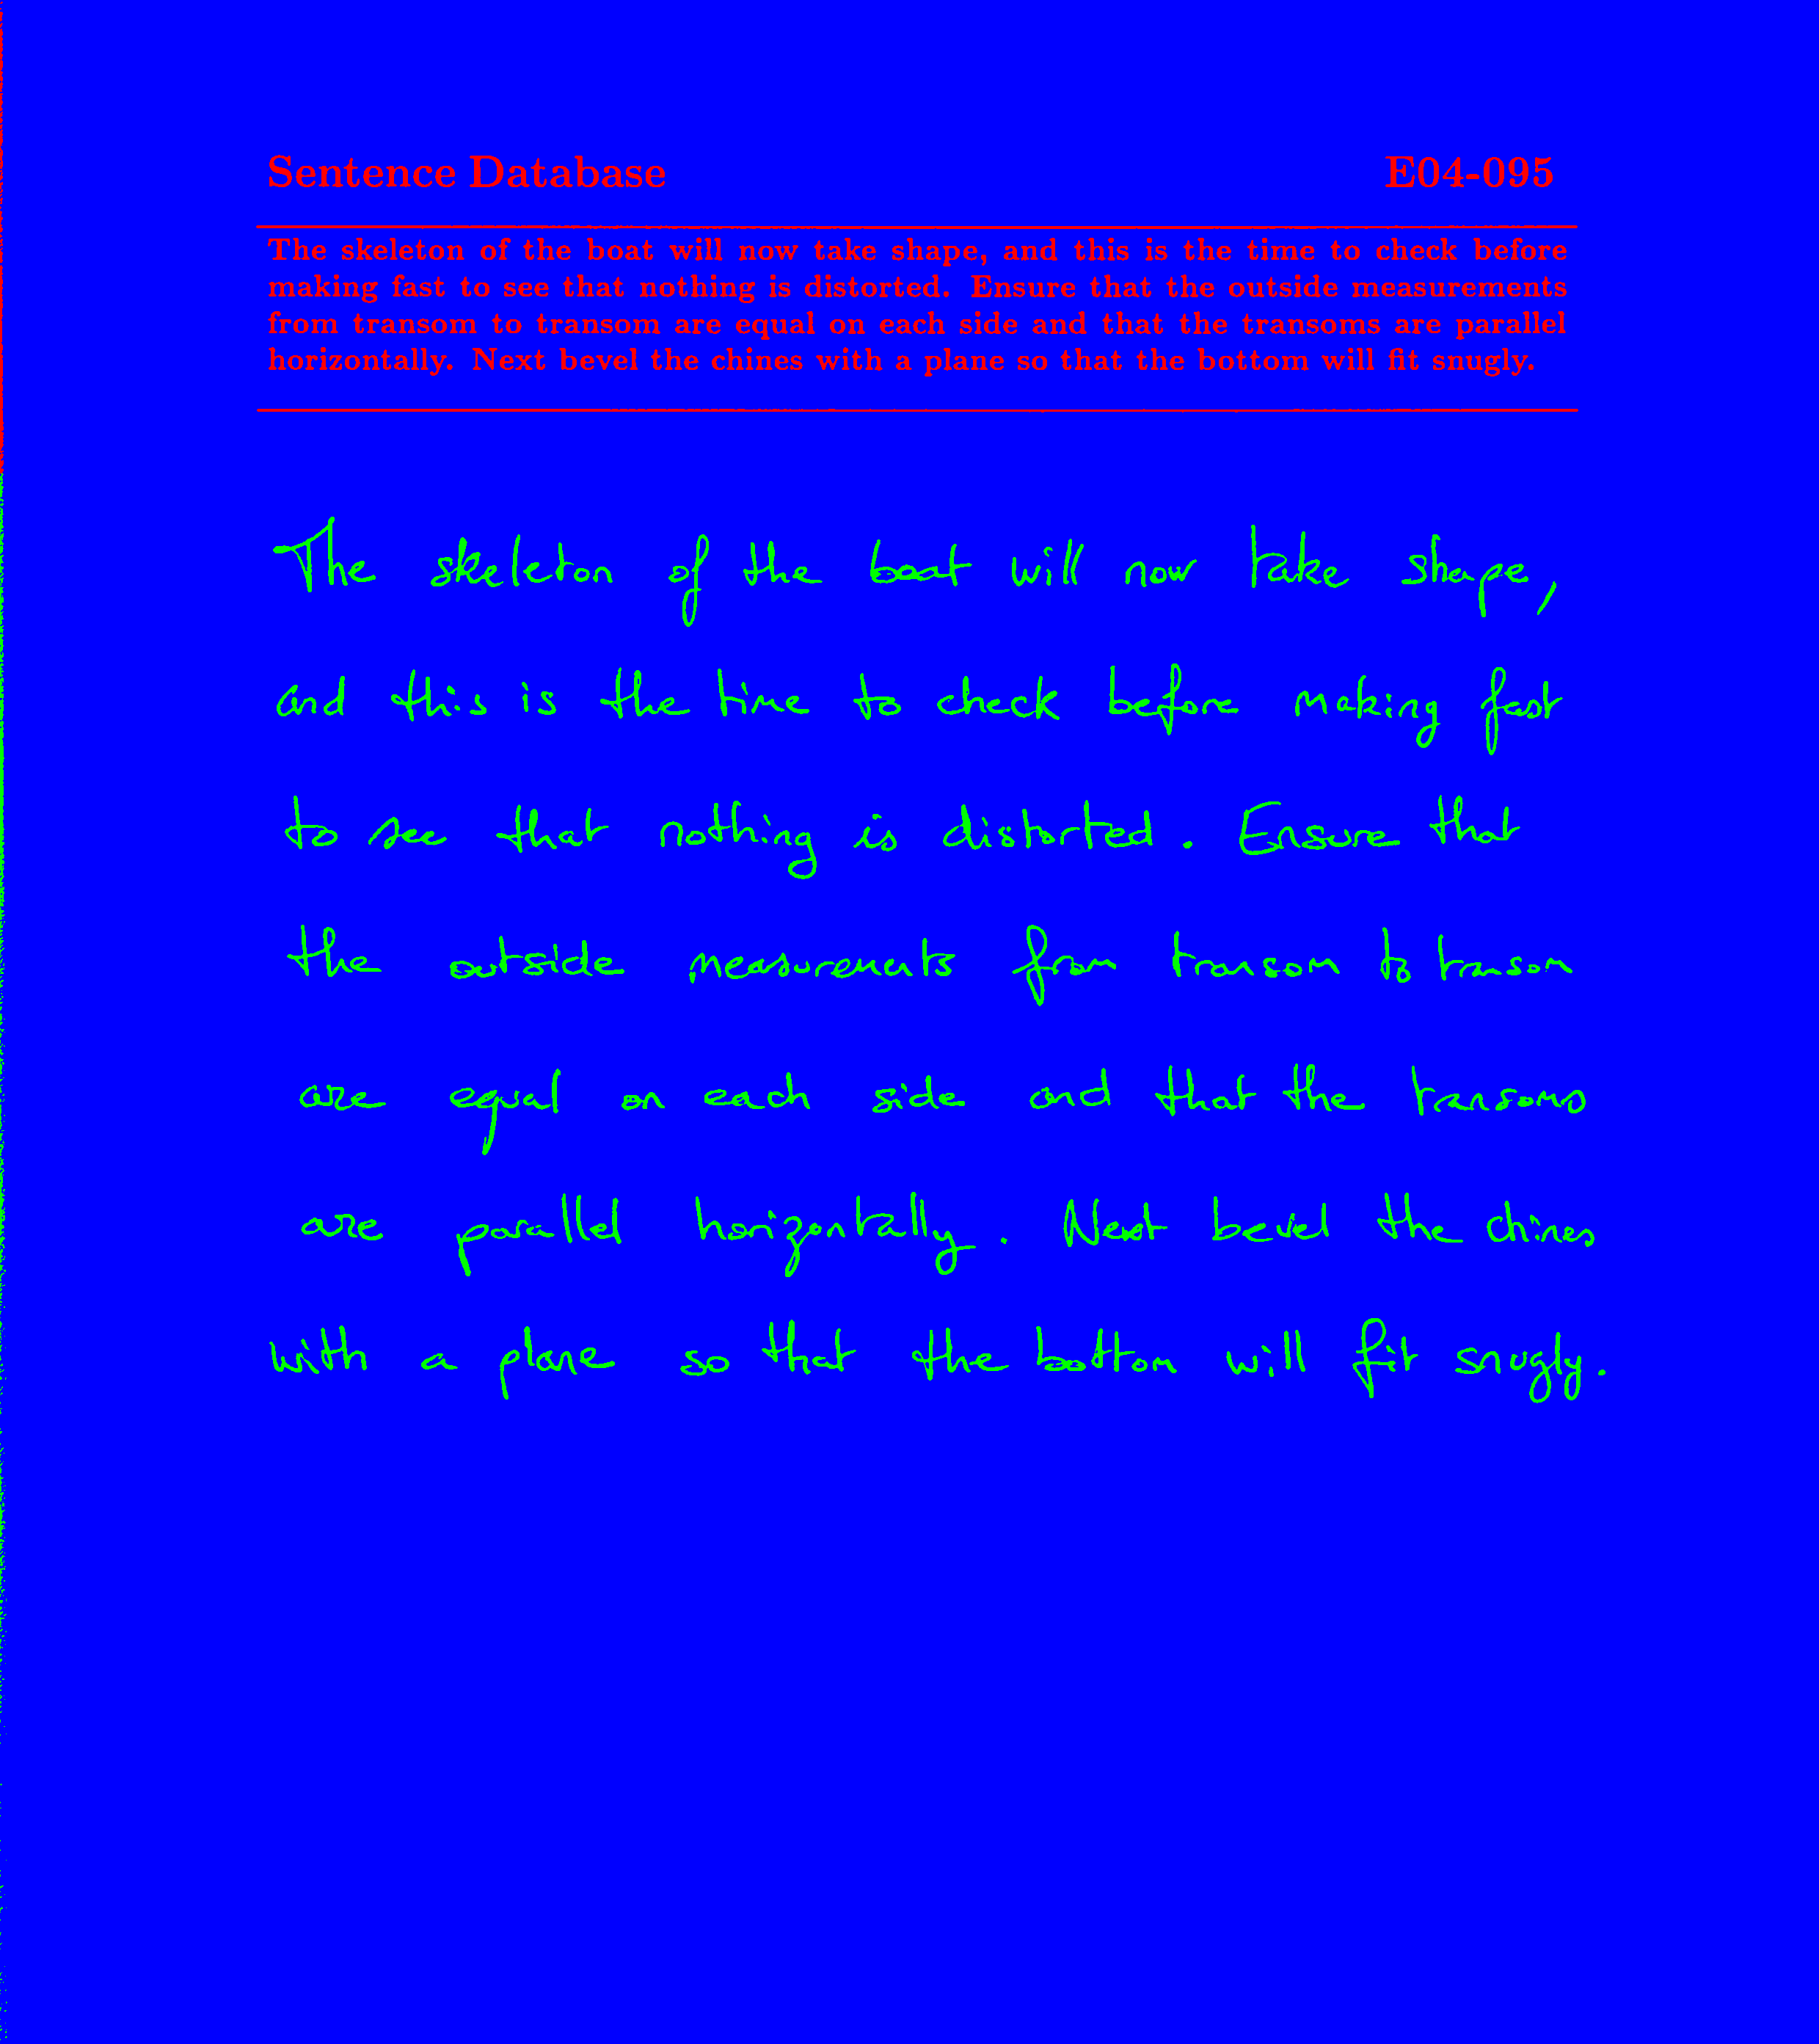 Sentence Database E04-095
The skeleton of the boat will now take shape, and this is the time to check before
making fast to see that nothing is distorted. Ensure that the outside measurements
from transom to transom are equal on each side and that the transoms are parallel
horizontally. Next bevel the chines with a plane so that the bottom will fit snugly.
The skeleton of the boat will now take shape,
and this is the time to check before making fast
to see that nothing is distorted. Ensure that
the outside measurements from transom to transom
are equal on each side and that the transoms
are parallel horizontally. Next bevel the chines
with a plane so that the bottom will fit snugly.